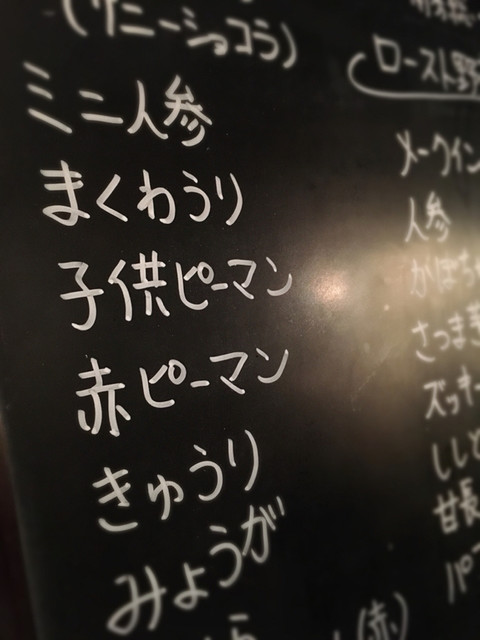 (サニーショコラ)
ミニ人参
まくわうり
子供ピーマン
赤ピーマン
きゅうり
みょうが
ロースト野
メークイン
人参
かぼちゃ
さつま
ズッキー
ししと
甘長
パプ
(赤)